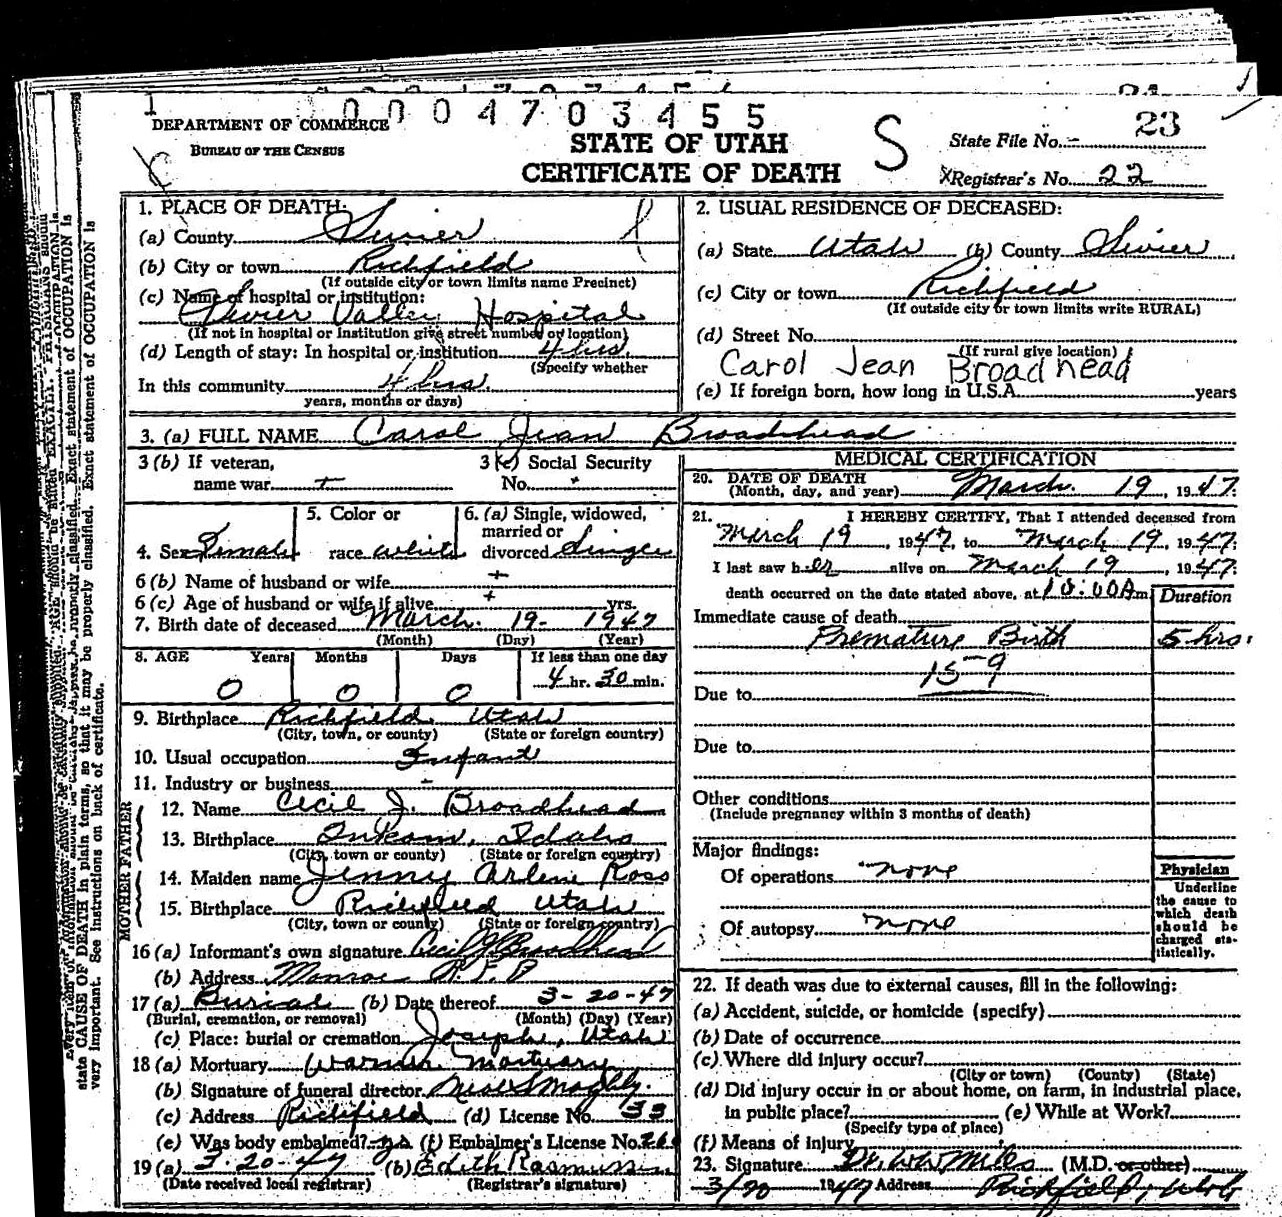 0004703455
DEPARTMENT OF COMMERCE
BUREAU OF THE CENSUS
STATE OF UTAH
CERTIFICATE OF DEATH
S
State File No. 23
Registrar's No. 22
1. PLACE OF DEATH:
(a) County Sevier
(b) City or town Richfield
(If outside city or town limits name Precinct)
(c) Name of hospital or institution:
Sevier Valley Hospital
(If not in hospital or institution give street number or location)
(d) Length of stay: In hospital or institution 4 hrs.
(Specify whether
In this community 4 hrs.
years, months or days)
2. USUAL RESIDENCE OF DECEASED:
(a) State Utah (b) County Sevier
(c) City or town Richfield
(If outside city or town limits write RURAL)
(d) Street No.
(If rural give location)
Carol Jean Broadhead
(e) If foreign born, how long in U.S.A. years
3. (a) FULL NAME Carol Jean Broadhead
3 (b) If veteran, name war
3 (c) Social Security No.
4. Sex Female
5. Color or race white
6. (a) Single, widowed, married or divorced Single
6 (b) Name of husband or wife
6 (c) Age of husband or wife if alive yrs.
7. Birth date of deceased March 19- 1947
(Month) (Day) (Year)
8. AGE Years Months Days If less than one day
0 0 0 4 hr. 30 min.
9. Birthplace Richfield Utah
(City, town, or county) (State or foreign country)
10. Usual occupation Infant
11. Industry or business -
FATHER
12. Name Cecil J. Broadhead
13. Birthplace Inkom, Idaho
(City, town or county) (State or foreign country)
MOTHER
14. Maiden name Jenny Arlene Ross
15. Birthplace Richfield Utah
(City, town or county) (State or foreign country)
16 (a) Informant's own signature Cecil J Broadhead
(b) Address Monroe R.F.D
17 (a) Burial (b) Date thereof 3-20-47
(Burial, cremation, or removal) (Month) (Day) (Year)
(c) Place: burial or cremation Joseph, Utah
18 (a) Mortuary Warner Mortuary
(b) Signature of funeral director
(c) Address Richfield (d) License No. 33
(e) Was body embalmed? (f) Embalmer's License No.
19 (a) 3 20-47 (b) Edith Rasmussen
(Date received local registrar) (Registrar's signature)
MEDICAL CERTIFICATION
20. DATE OF DEATH
(Month, day, and year) March 19, 1947.
21. I HEREBY CERTIFY, That I attended deceased from
March 19, 1947, to March 19, 1947.
I last saw her alive on March 19, 1947.
death occurred on the date stated above, at 10:00A m.
Duration
Immediate cause of death
Premature Birth 5 hrs.
159
Due to
Due to
Other conditions
(Include pregnancy within 3 months of death)
Major findings:
Of operations none
Of autopsy none
Physician
Underline
the cause to
which death
should be
charged sta-
tistically.
22. If death was due to external causes, fill in the following:
(a) Accident, suicide, or homicide (specify)
(b) Date of occurrence
(c) Where did injury occur?
(City or town) (County) (State)
(d) Did injury occur in or about home, on farm, in industrial place,
in public place? (e) While at Work?
(Specify type of place)
(f) Means of injury
23. Signature Dr. W W Miles (M.D. or other)
3/20 1947 Address Richfield, Utah
state CAUSE OF DEATH in plain terms, so that it may be properly classified. Exact statement of OCCUPATION is
very important. See instructions on back of certificate.